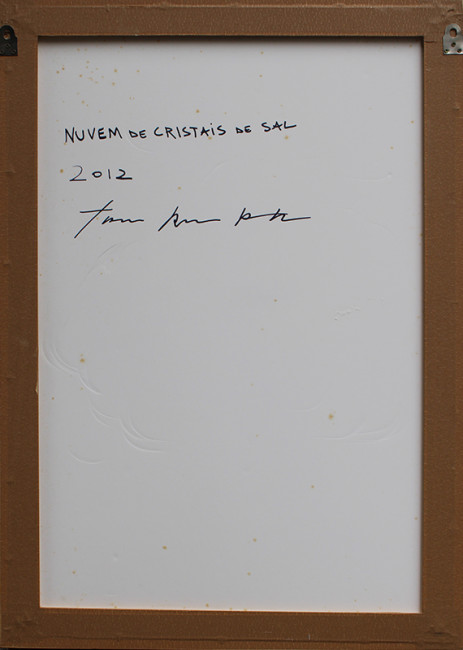 NUVEM DE CRISTAIS DE SAL
2012